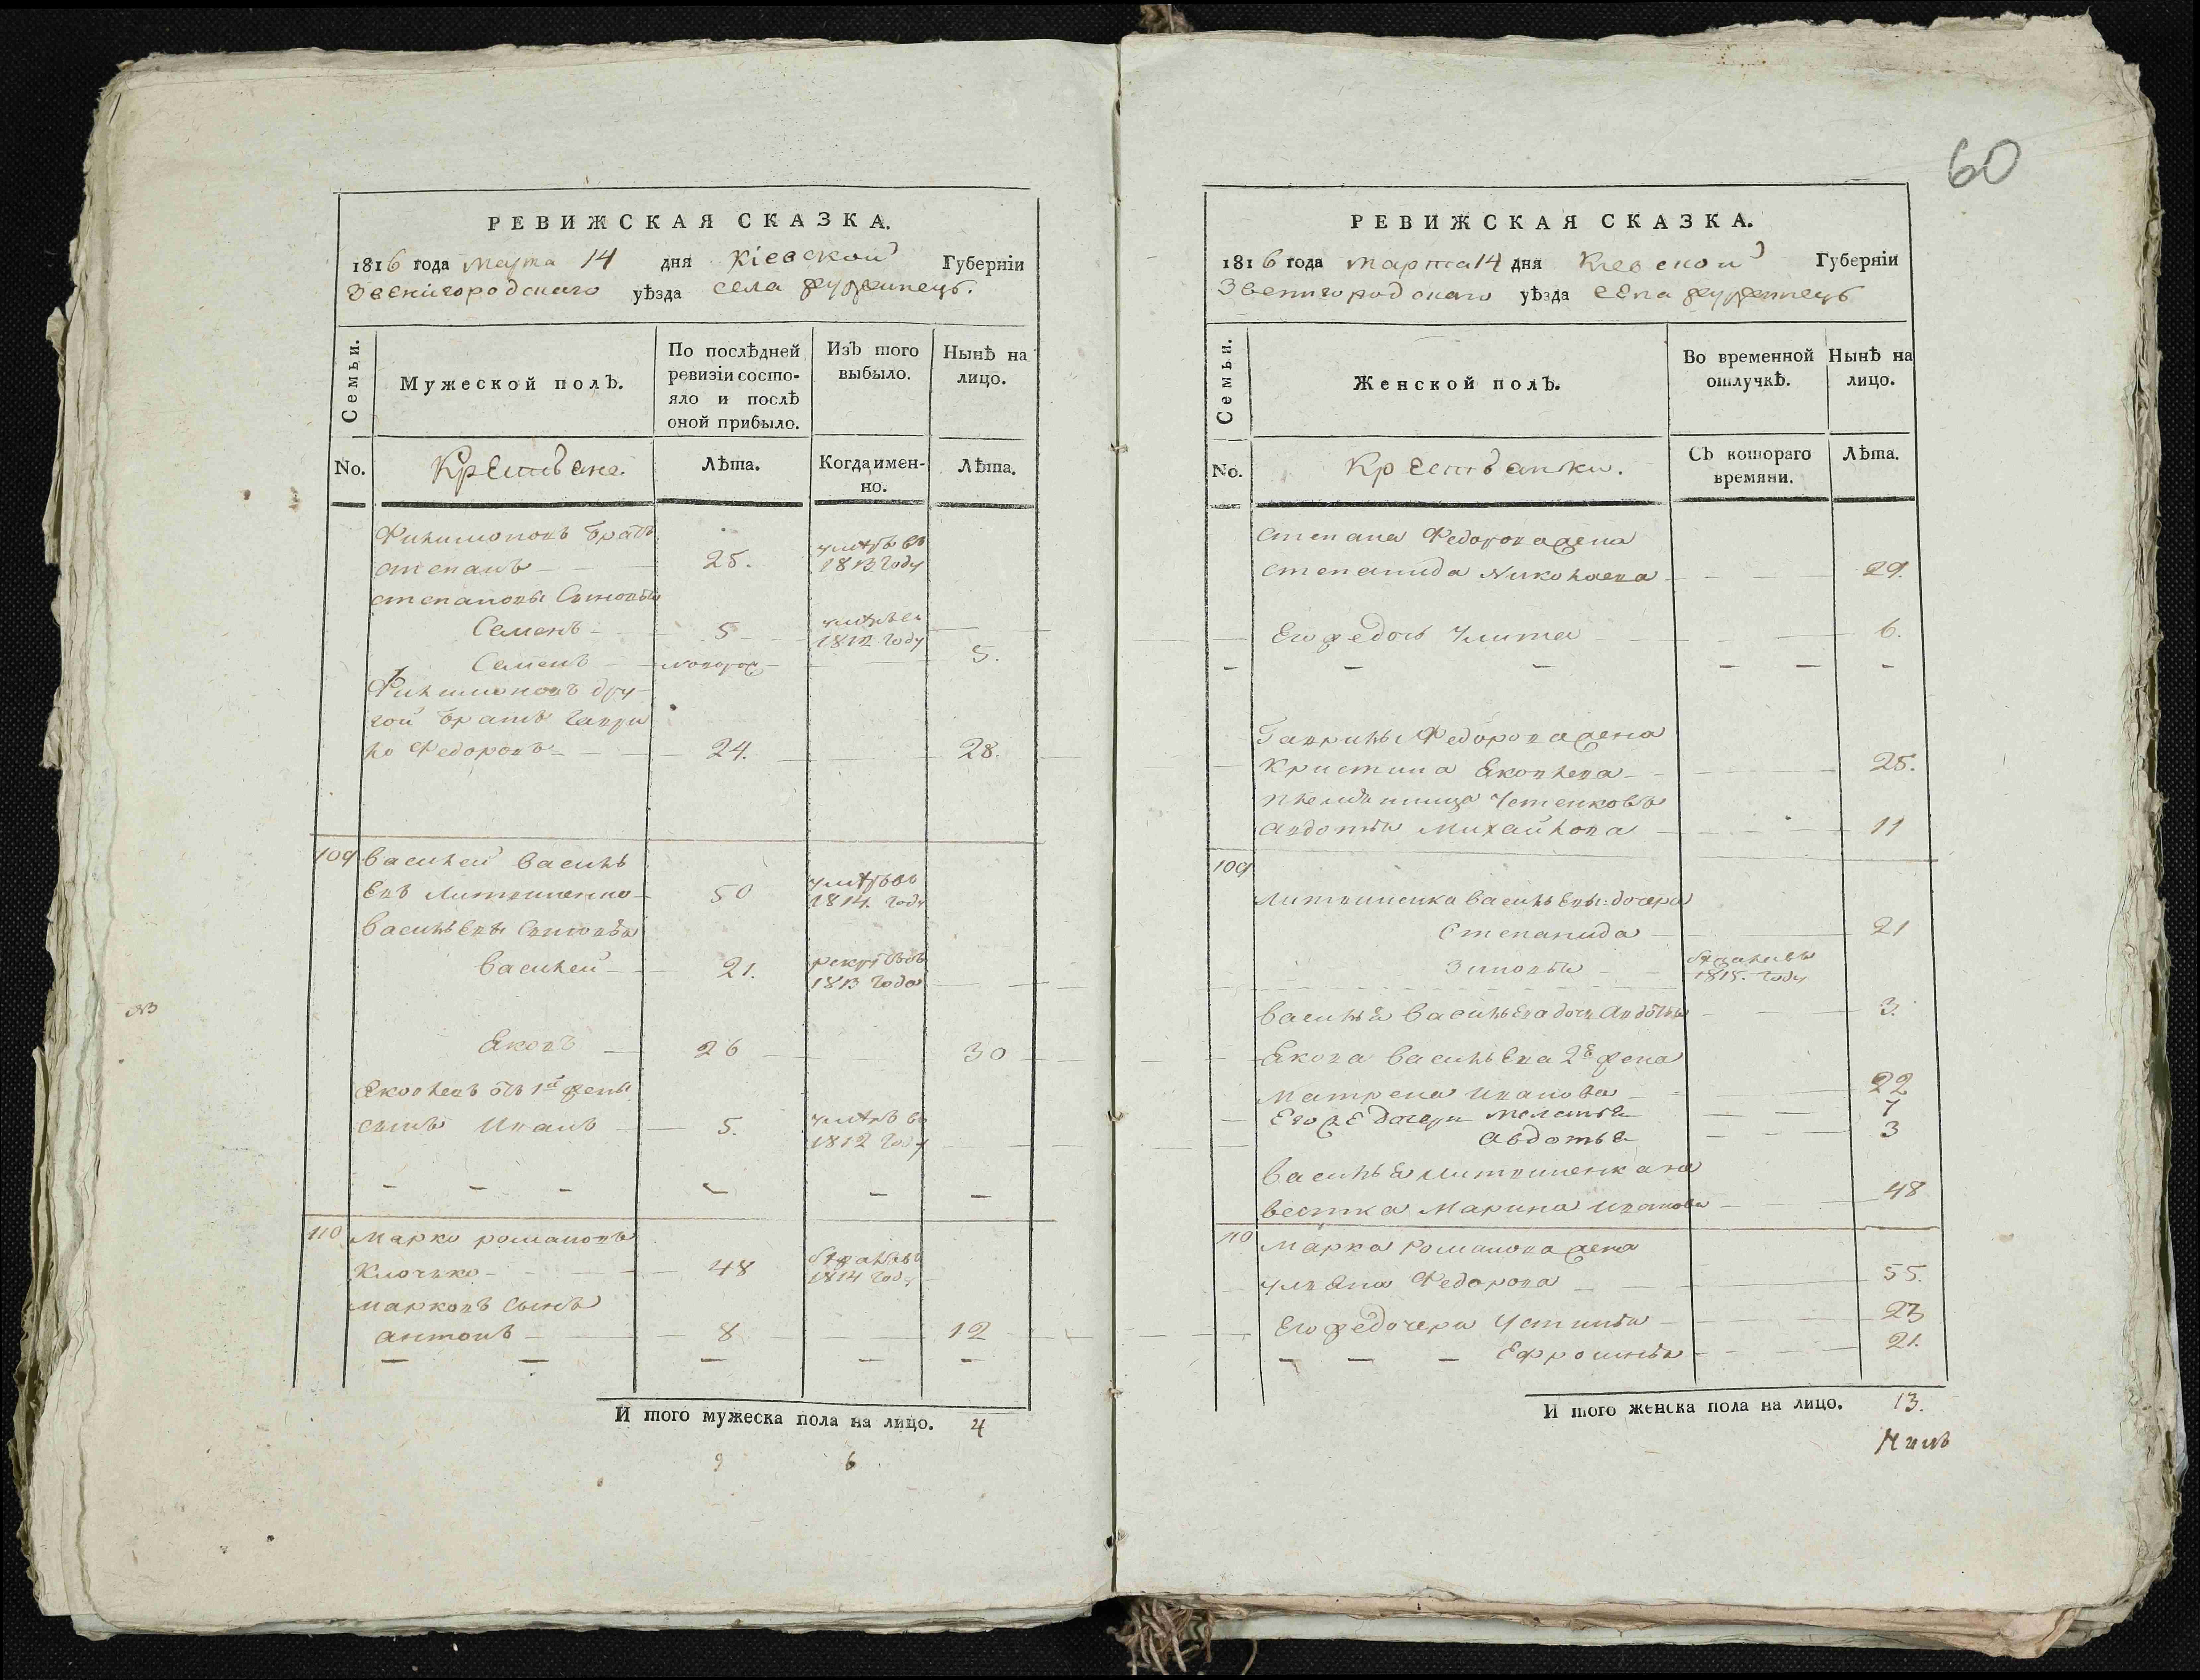 60
РЕВИЖСКАЯ СКАЗКА.
1816 года марта 14 дня Кіевской Губерніи
Звенигородскаго уѣзда села
Семьи.
Мужеской полъ.
По послѣдней ревизіи состояло и послѣ оной прибыло.
Изъ того выбыло.
Нынѣ на лицо.
No.
Крестьяне.
Лѣта.
Когда именно.
Лѣта.
Филимоновъ братъ
степанъ 25. умѣръ въ 1813 году
степановы сыновья
Семенъ 5 умѣръ въ 1812 году
Семенъ новорож 5.
Филимоновъ дру-
гой братъ гаври
ло Федоровъ 24. 28.
109 василей василь
евъ Литвиненко 50 умѣръ въ 1814. году
васильевы сыновья
василей 21. рекрутъ 1813 года
Яковъ 26 30
Яковлевъ отъ 1й жены
сынъ Иванъ 5. умѣръ въ 1812 году
110 Марко романовъ
Клочько 48 1814 году
Марковъ сынъ
антонъ 8 12
И того мужеска пола на лицо. 4
9 6
РЕВИЖСКАЯ СКАЗКА.
1816 года марта 14 дня Кіевской Губерніи
Звенигородскаго уѣзда села
Семьи.
Женской полъ.
Во временной отлучкѣ.
Нынѣ на лицо.
No.
Крестьянки.
Съ котораго времяни.
Лѣта.
степана Федорова жена
степанида Николаева 29.
Его же дочь Улита 6.
Гаврилы Федорова жена
Кристина Яковлева 25.
племянница
авдотья Михайлова 11
109
Литвиненка васильевы дочери
Степанида 21
Зиновья 1815. году
Василья Васильева дочь авдотья 3.
Якова васильева 2я жена
Матрена Иванова 22
Его же дочери Меланья 7
авдотья 3
Василья Литвиненка не
вестка Марина Иванова 48
110 Марка Романова жена
Ульяна Федорова 55.
Его же дочери Устинья 23
Ефросинья 21.
И того женска пола на лицо. 13.